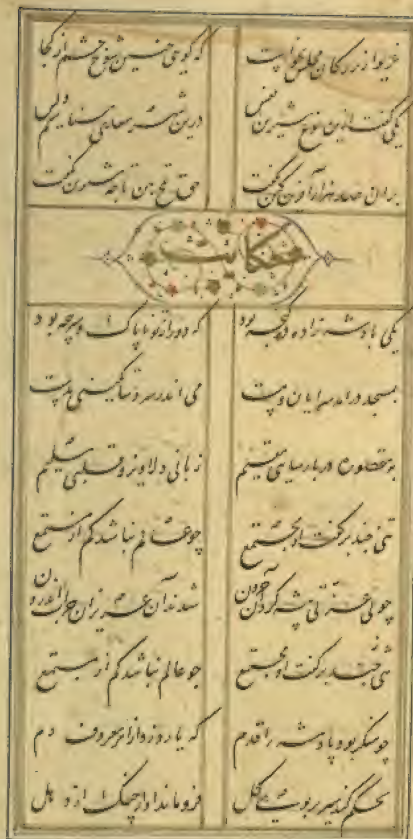 غریو از بزرگان مجلس بخواست که گویی چنین شوخ چشم از کجا
یکی گفت ازین نوع شیرین نفس درین شهر سعدی شناسیم و بس
بران صد هزار آفرین کین بگفت حق تلخ بین تا چه شیرین بگفت
حکایت
یکی پادشه زاده در گنجه بود که دور از تو ناپاک و سرپنجه بود
بمسجد درآمد سرایان و مست می اندر سر و ساتکینی بدست
بمقصوره در پارسایی مقیم زبانی دلاویز و قلبی سلیم
تنی چند بر گفت او مجتمع چو عالم نباشد کم از مستمع
چو بی عزتی پیشه کرد آن حرون شدند آن عزیزان خراب اندرون
تنی چند بر گفت او مجتمع چو عالم نباشد کم از مستمع
چو منکر بود پادشه را قدم که یارد زد از امر معروف دم
تحکم کند سیر بر بوی گل فرو ماند آواز چنگ از دهل